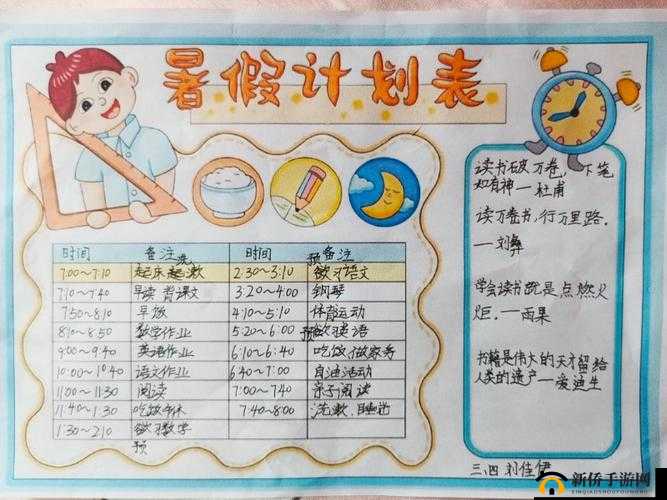 暑假计划表
时间 备注 时间 备注
7:00~7:10 起床 2:30~3:10 预习语文
7:10~7:40 早读 背课文 3:20~4:00 钢琴
7:50~8:10 早饭 4:10~5:10 体育运动
8:10~8:50 数学作业 5:20~6:00 预习英语
9:00~9:40 英语作业 6:10~6:40 吃饭 做家务
10:00~10:40 语文作业 6:40~7:00 自由活动
11:00~11:30 阅读 7:00~7:40 亲子阅读
11:40~1:30 吃饭午休 7:40~8:00 洗漱，睡觉
1:30~2:10 预习数学
读书破万卷，下笔
如有神—杜甫
读万卷书，行万里路.
—刘彝
学会读书就是点燃火
炬.—雨果
书籍是伟大的天才留给
人类的遗产—爱迪生
三.四 刘佳伊
新侨手游网
XINQIAOSHOUYOUWANG